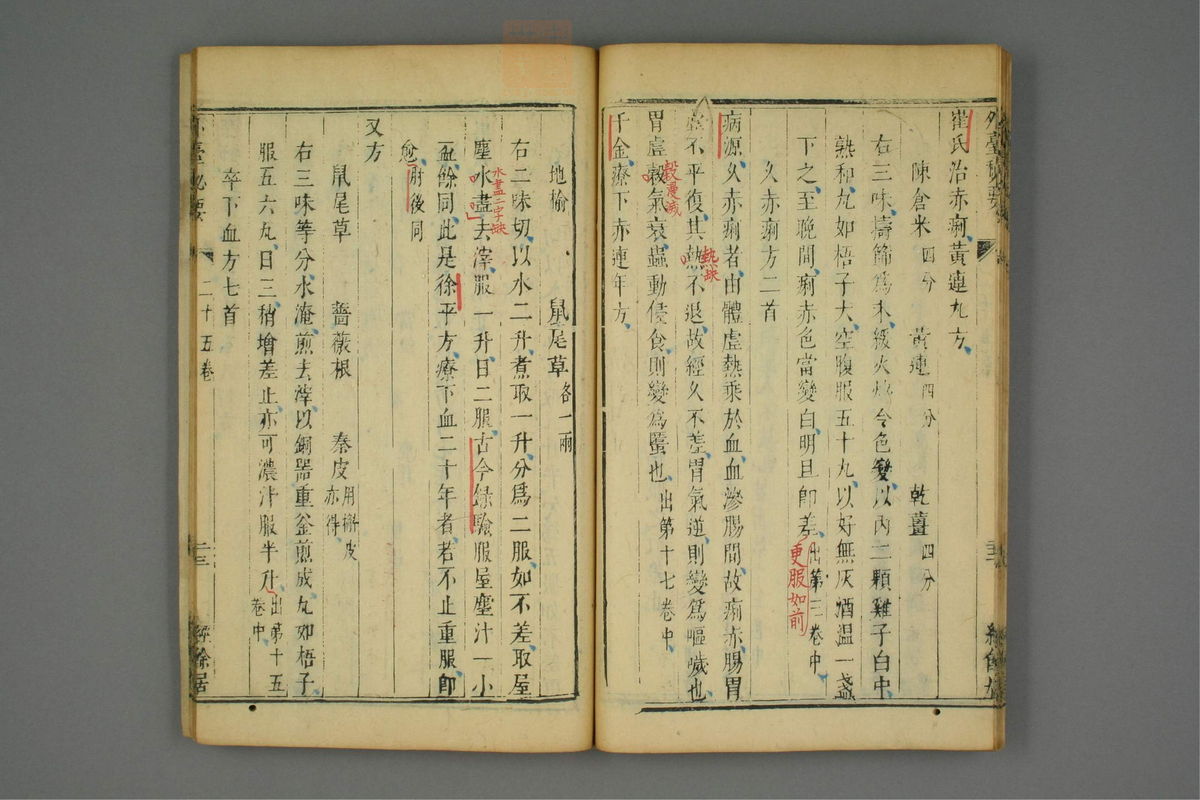 崔氏治赤痢黃連丸方
陳倉米四分　黃連四分　乾薑四分
右三味擣篩爲末緩火炒令色變以內二顆雞子白中
熟和丸如梧子大空腹服五十丸以好無灰酒温一盞
下之至晚間痢赤色當變白明旦即差出第三卷中
更服如前
久赤痢方二首
病源久赤痢者由體虛熱乘於血血滲腸間故痢赤腸胃
虛不平復其熱不退故經久不差胃氣逆則變爲嘔噦也
熱缺
胃虛穀氣衰蟲動侵食則變爲䘌也出第十七卷中
穀漫滅
千金療下赤連年方
地榆　鼠尾草各一兩
右二味切以水二升煮取一升分爲二服如不差取屋
塵水盡去滓服一升日二服古今錄驗服屋塵汁一小
水盡二字缺
盃餘同此是徐平方療下血二十年者若不止重服即
愈肘後同
又方
鼠尾草　薔薇根　秦皮用槲皮亦得
右三味等分水淹煎去滓以銅器重釜煎成丸如梧子
服五六丸日三稍增差止亦可濃汁服半升出第十五卷中
卒下血方七首
二十五卷
二三
經餘居